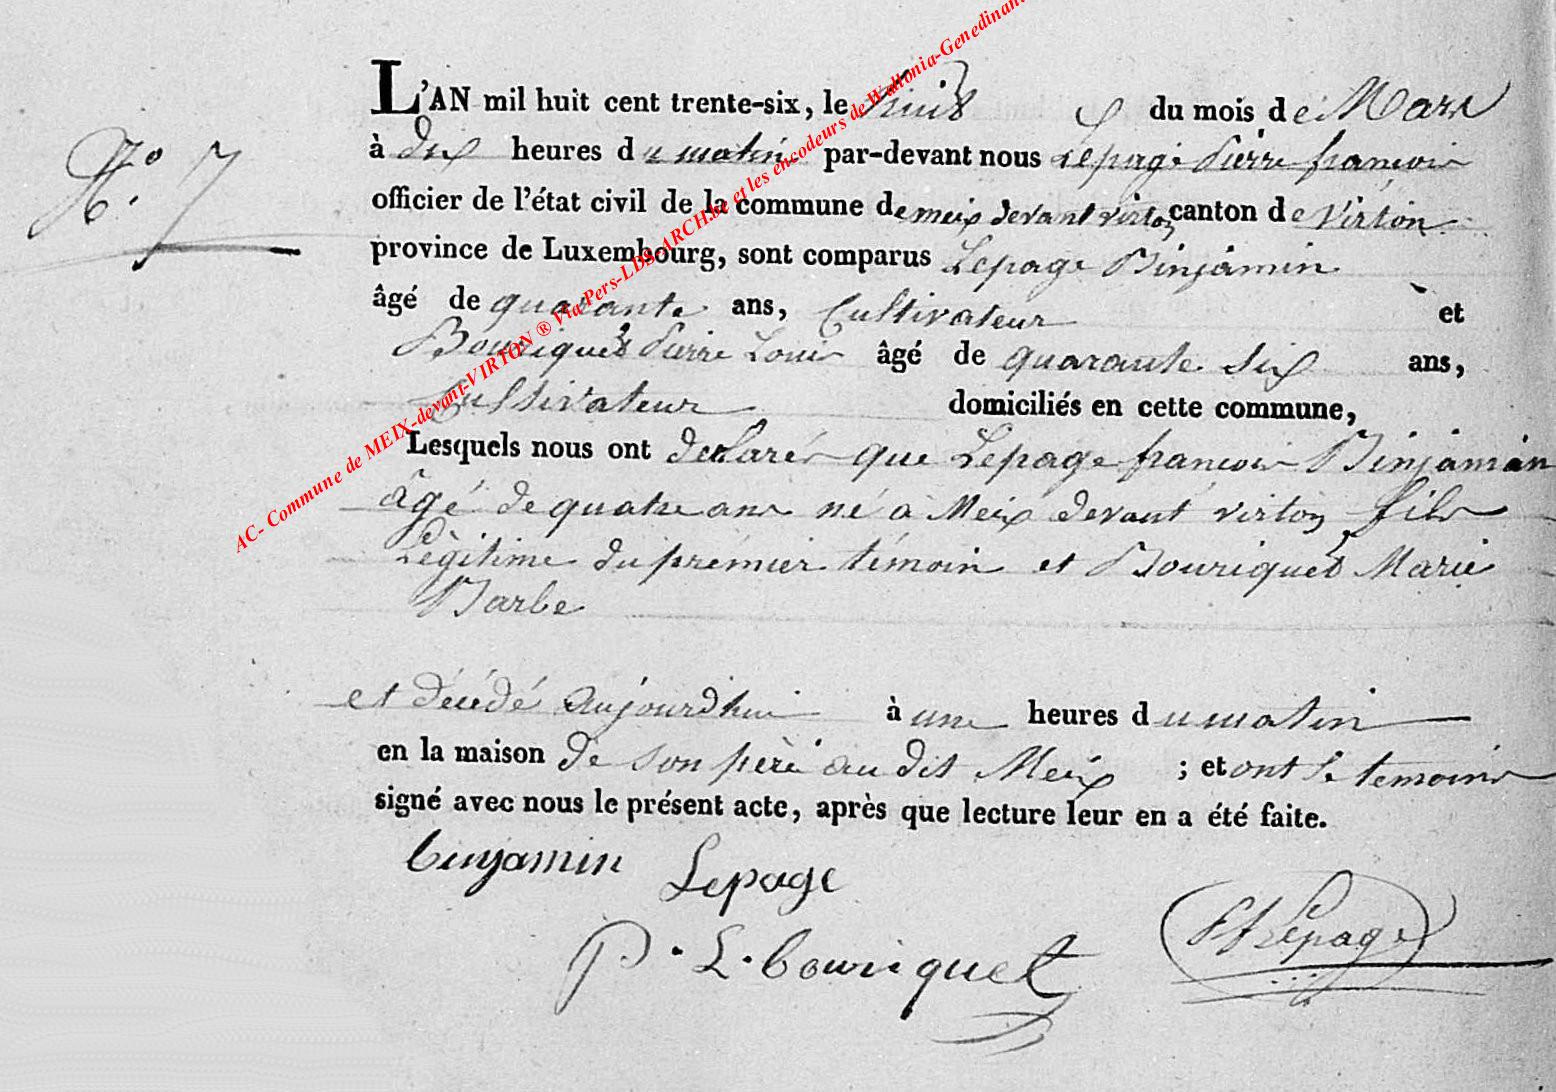 L'AN mil huit cent trente-six, le huit du mois de Mars
N.º 7
à dix heures du matin par-devant nous Lepage Pierre françois
officier de l'état civil de la commune de meix devant virton canton de Virton
province de Luxembourg, sont comparus Lepage Binjamin
âgé de quarante ans, Cultivateur et
Bouriquet Pierre Louis âgé de quarante six ans,
Cultivateur domiciliés en cette commune,
Lesquels nous ont declarés que Lepage françois Binjamin
âgé de quatre ans né à Meix devant virton fils
Légitime du premier témoin et Bouriquet Marie
Barbe
et décédé aujourdhui à une heures du matin
en la maison de son père au dit Meix ; et ont le temoins
signé avec nous le présent acte, après que lecture leur en a été faite.
binjamin Lepage
P. L. bouriquet
PF Lepage
AC- Commune de MEIX-devant-VIRTON ® Via Pers-LDS-ARCH.be et les encodeurs de Wallonia-Genedinant